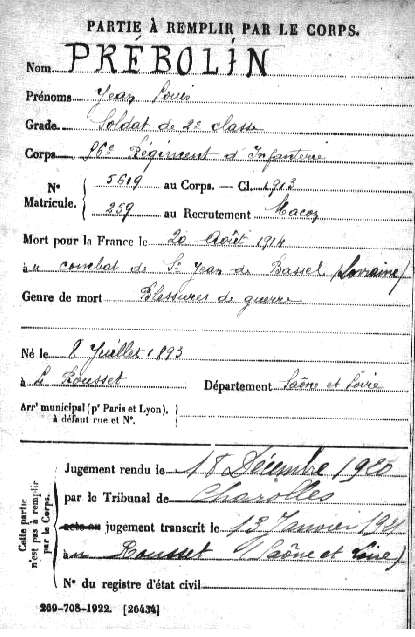 PARTIE À REMPLIR PAR LE CORPS.
Nom PRÉBOLIN
Prénoms Jean Louis
Grade Soldat de 2e classe
Corps 95e Régiment d'Infanterie
N° Matricule. 5619 au Corps. — Cl. 1913
259 au Recrutement Macon
Mort pour la France le 20 Août 1914
au combat de St Jean de Bassel (Lorraine)
Genre de mort Blessures de guerre
Né le 8 Juillet 1893
à Le Rousset Département Saône et Loire
Arrt municipal (pr Paris et Lyon), à défaut rue et N°.
Cette partie n'est pas à remplir par le Corps.
Jugement rendu le 18 Décembre 1920
par le Tribunal de Charolles
acte ou jugement transcrit le 13 Janvier
au Rousset (Saône et Loire)
N° du registre d'état civil
269-708-1922. [26434]